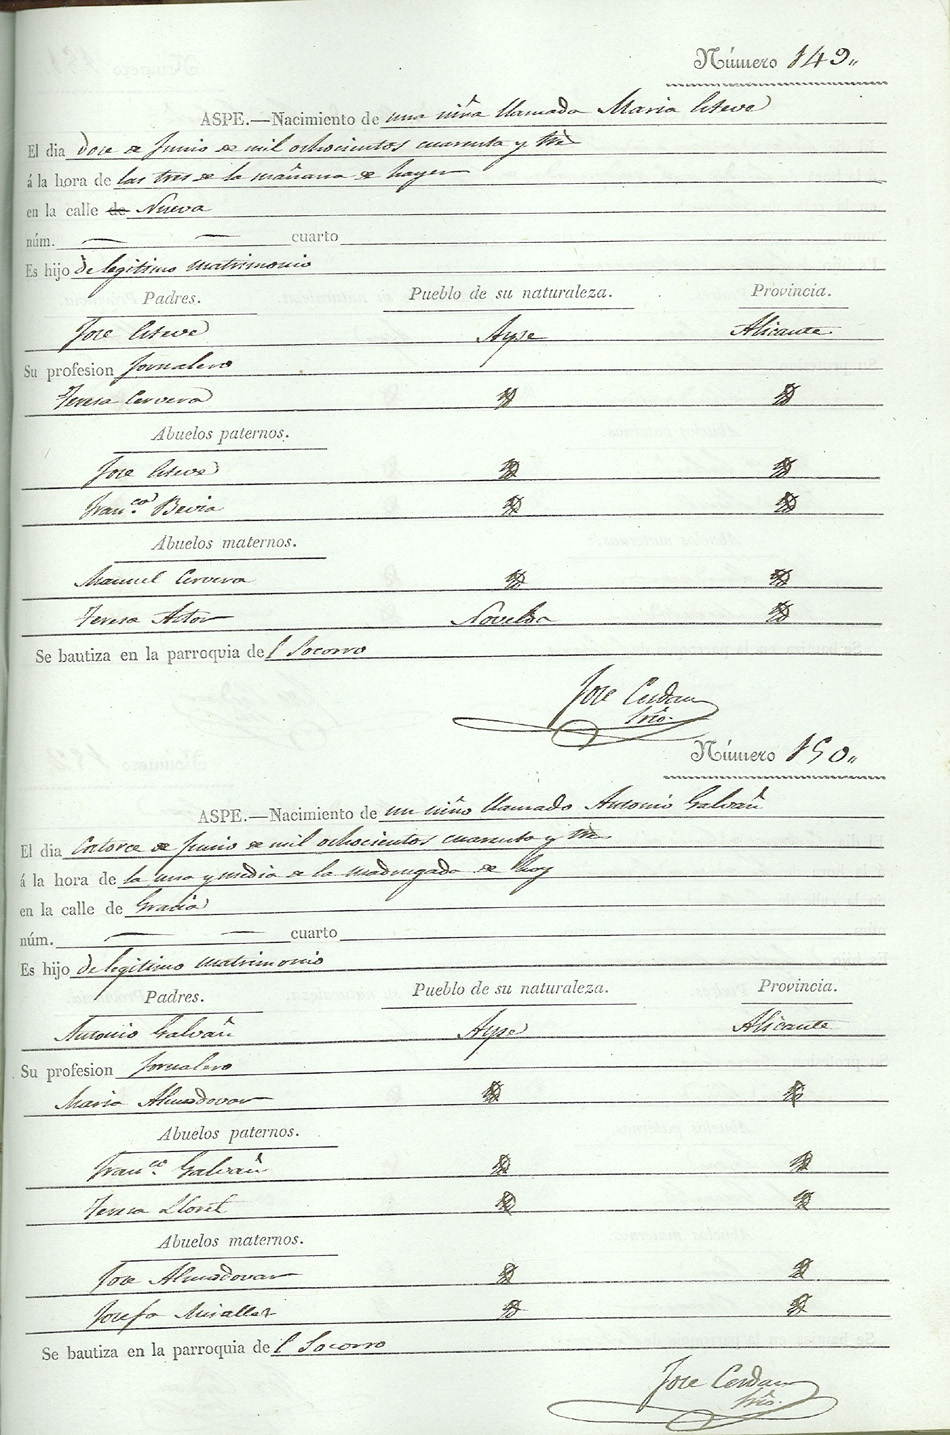 Número 149„
ASPE.—Nacimiento de una niña llamada Maria Esteve
El dia doce de Junio de mil ochocientos cuarenta y tres
á la hora de las tres de la mañana de hayer
en la calle de Nueva
núm. — — cuarto
Es hijo de legitimo matrimonio
Padres. Pueblo de su naturaleza. Provincia.
Jose Esteve Aspe Alicante
Su profesion Jornalero
Teresa Cervera
Abuelos paternos.
Jose Esteve
Fran.ca Bevia
Abuelos maternos.
Manuel Cervera
Teresa Novelda
Se bautiza en la parroquia del Socorro
Jose Cerdan
Srio.
Número 150„
ASPE.—Nacimiento de un niño llamado Antonio Galvañ
El dia Catorce de Junio de mil ochocientos cuarenta y tres
á la hora de la una y media de la madrugada de hoy
en la calle de Gracia
núm. — — cuarto
Es hijo de legitimo matrimonio
Padres. Pueblo de su naturaleza. Provincia.
Antonio Galvañ Aspe Alicante
Su profesion Jornalero
Maria Almodovar
Abuelos paternos.
Fran.co Galvañ
Teresa Lloret
Abuelos maternos.
Jose Almodovar
Josefa Miralles
Se bautiza en la parroquia del Socorro
Jose Cerdan
Srio.